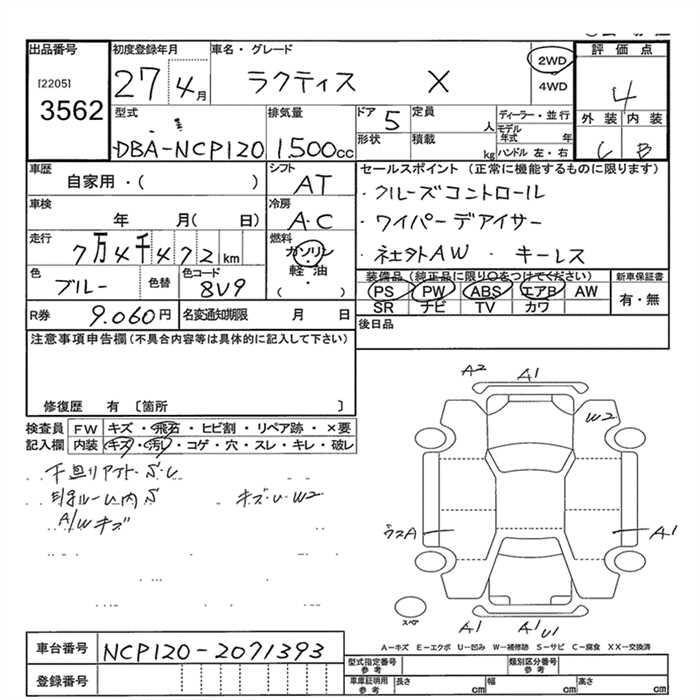 出品番号
[2205]
3562
初度登録年月
27 4月
車名・グレード
ラクティス X
2WD
4WD
評価点
4
外装 内装
C B
型式
DBA-NCP120
排気量
1500cc
ドア 5
定員 人
形状
積載 kg
ディーラー・並行
モデル年式 年
ハンドル 左・右
車歴
自家用・( )
シフト
AT
車検
年 月( 日)
冷房
A・C
走行
7万4千472km
燃料
ガソリン
・
軽油
( ・ )
色
ブルー
色替
色コード
8V9
R券 9.060円
名変通知期限 月 日
セールスポイント(正常に機能するものに限ります)
・クルーズコントロール
・ワイパーデアイサー
・社外AW ・キーレス
装備品(純正品に限り○をつけてください)
PS PW ABS エアB AW
SR ナビ TV カワ
新車保証書
有・無
後日品
注意事項申告欄(不具合内容等は具体的に記入して下さい)
修復歴 有 〔箇所 〕
検査員記入欄
FW キズ・飛石・ヒビ割・リペア跡・×要
内装 キズ・汚レ・コゲ・穴・スレ・キレ・破レ
下廻りアト・S・U
ルーム内S キズ・U・W2
A/Wキズ
A2
A1
W2
A1
A1
A1
U1
スペア
A-キズ E-エクボ U-凹み W-補修跡 S-サビ C-腐食 XX-交換済
車台番号
NCP120-2071393
登録番号
型式指定番号
参考
類別区分番号
参考
車庫証明用
参考
長さ cm
幅 cm
高さ cm